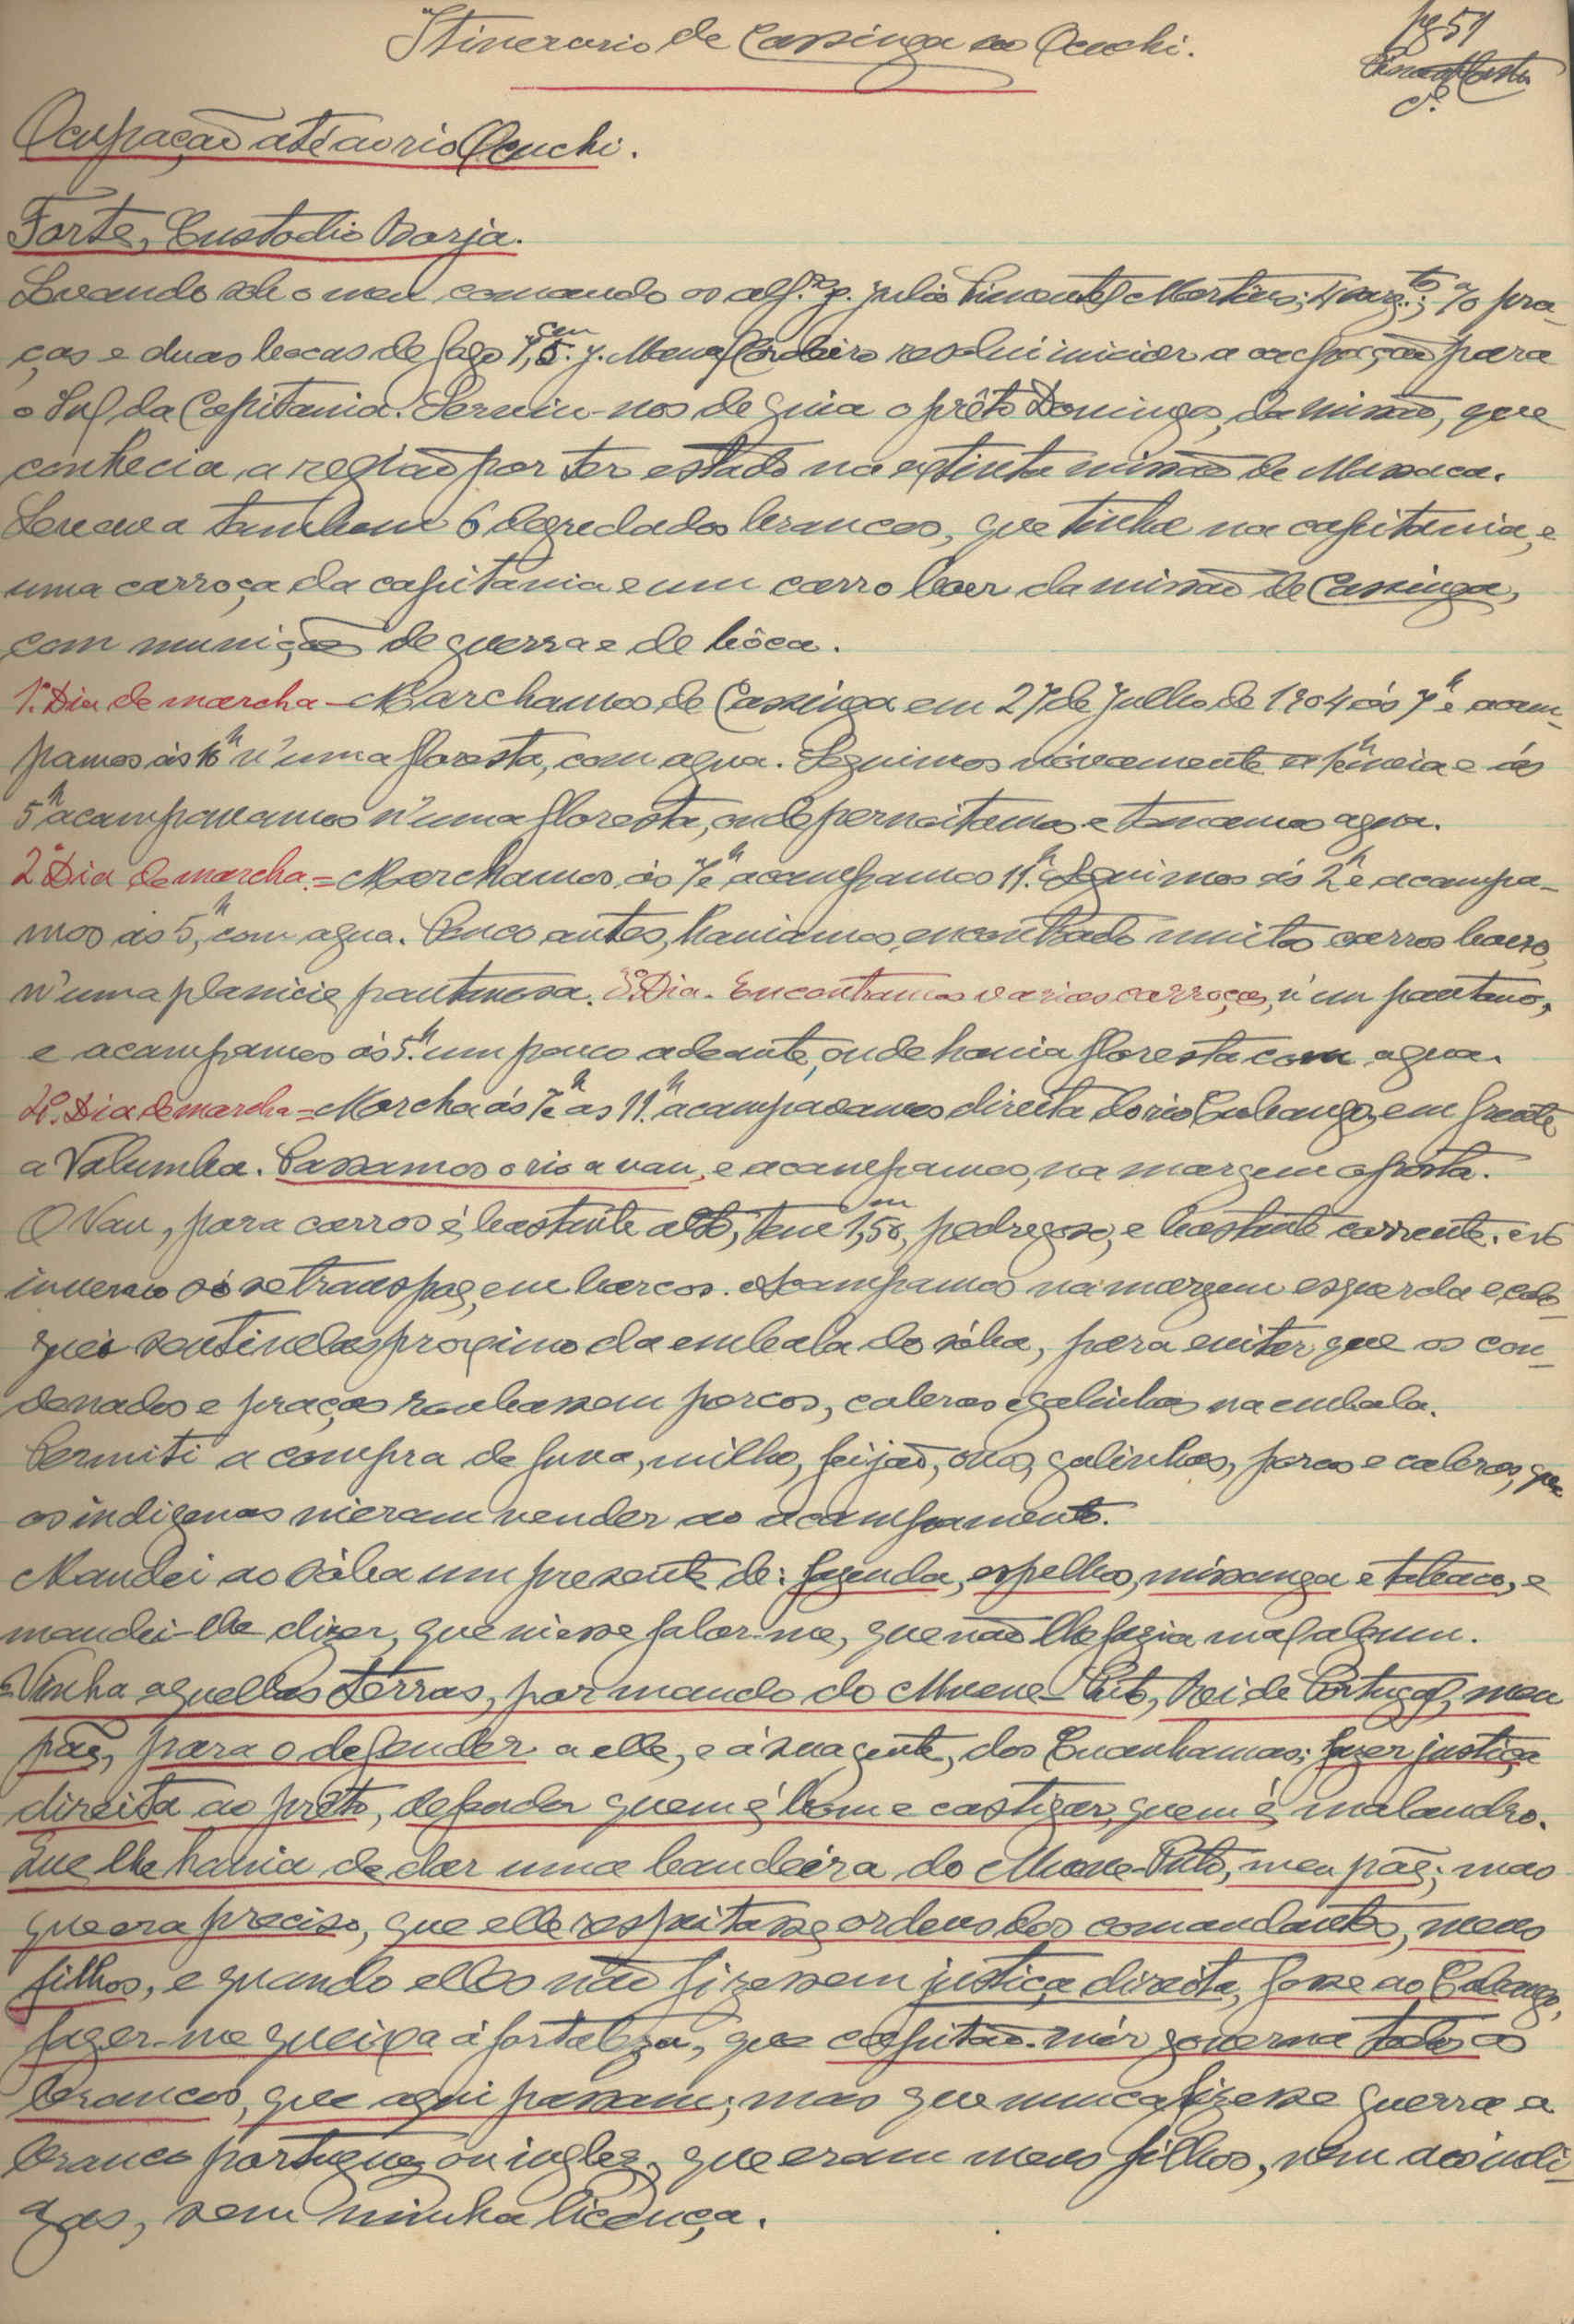 Itinerario de Cassinga ao Cuchi.
pg 51
Ocupação até ao rio Cuchi.
Forte, Custodio Borja.
Levando sob o meu comando os alf.es p. Julio Pimentel Martins; 4 sarg.tos; 70 pra-
ças e duas bocas de fogo 7,5.cm p. Mena Cordeiro resolvi iniciar a ocupação para
o Sul da Capitania. Serviu-nos de guia o prêto Domingos, da missão, que
conhecia a região por ter estado na extinta missão de Massaca.
Levava tambem 6 degredados brancos, que tinha na capitania, e
uma carroça da capitania e um carro boer da missão de Cassinga,
com munições de guerra e de bôca.
1.º Dia de marcha - Marchamos de Cassinga em 27 de Julho de 1904 ás 7h e acam-
pamos ás 10h n'uma floresta, com agua. Seguimos nóvamente á 1h e meia e ás
5h acampavamos n'uma floresta, onde pernoitamos e tomamos agua.
2.º Dia de marcha. = Marchamos, ás 7h e acampamos 11.h Seguimos ás 2h e acampa-
mos ás 5,h com agua. Pouco antes, haviamos encontrado muitos carros boers,
n'uma planicie pantanosa. 3.º Dia. Encontramos varias carroças, n'um pantano,
e acampamos ás 5.h um pouco adeante, onde havia floresta com agua.
4.º Dia de marcha = Marcha ás 7h e as 11.h acampavamos direita do rio Cubango, em frente
a Valumba. Passamos o rio a vau, e acampamos, na margem oposta.
O Vau, para carros é, bastante alto, tem 1,50,m pedregoso, e bastante corrente. No
inverno só se transpõe, em barcos. Acampamos na margem esquerda e colo-
quei sentinelas proximo da embala do sóba, para evitar que os con-
denados e praças roubassem porcos, cabras e galinhas na embala.
Permiti a compra de fuva, milho, feijão, ovos, galinhas, porcos e cabras, que
os indigenas vieram vender ao acampamento.
Mandei ao sóba um presente de: fazenda, espelhos, missanga e tabaco, e
mandei-lhe dizer, que viesse falar-me, que não lhe fazia mal algum.
Vinha aquellas terras, por mando do Muene-Puto, Rei de Portugal, meu
pãe, para o defender a elle, e á sua gente, dos Cuanhamas; fazer justiça
direita ao prêto, defender quem é bom e castigar, quem é, malandro.
Que lhe havia de dar uma bandeira do Muene-Puto, meu pãe; mas
que era preciso, que elle respeitasse ordens dos comandantes, meus
filhos, e quando elles não fizessem justiça direita, fosse ao Cubango,
fazer-me queixa á fortaleza, que capitão-mór governa todos os
brancos, que aqui passam; mas que nunca fizesse guerra a
branco portuguez ou inglez, que eram meus filhos, nem aos indi-
gas, sem minha licença.